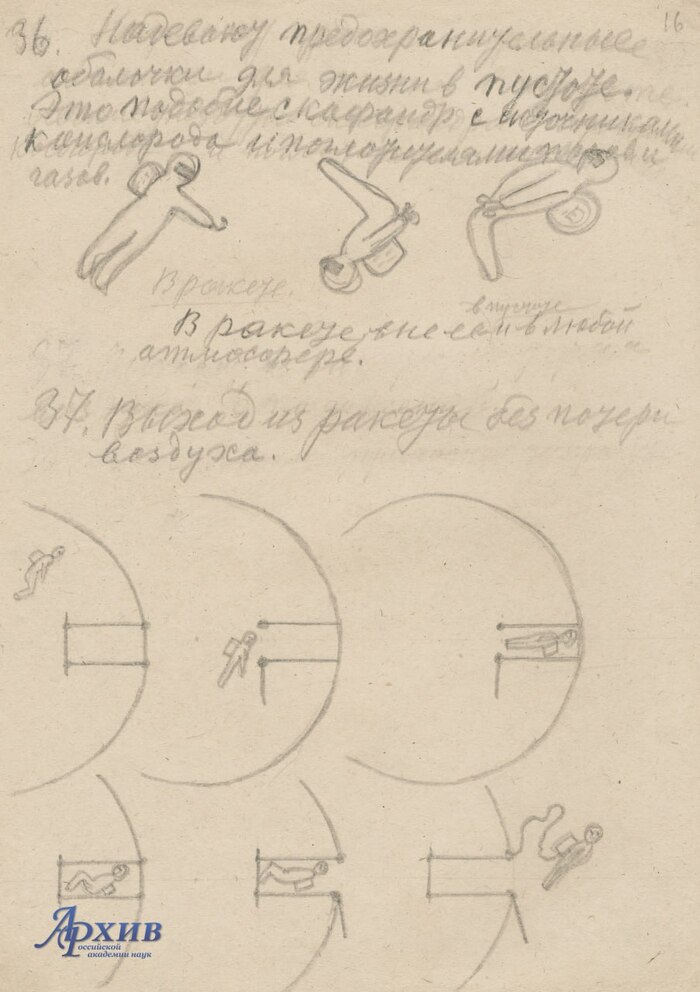 16
36. Надевают предохранительные
оболочки для жизни в пустоте.
Это подобие скафандр с источниками
кислорода и поглотителями паров и
газов.
В ракете.
в пустоте
В ракете, вне ея и в любой
атмосфере.
37. Выход из ракеты без потери
воздуха.
Архив
Российской
академии наук